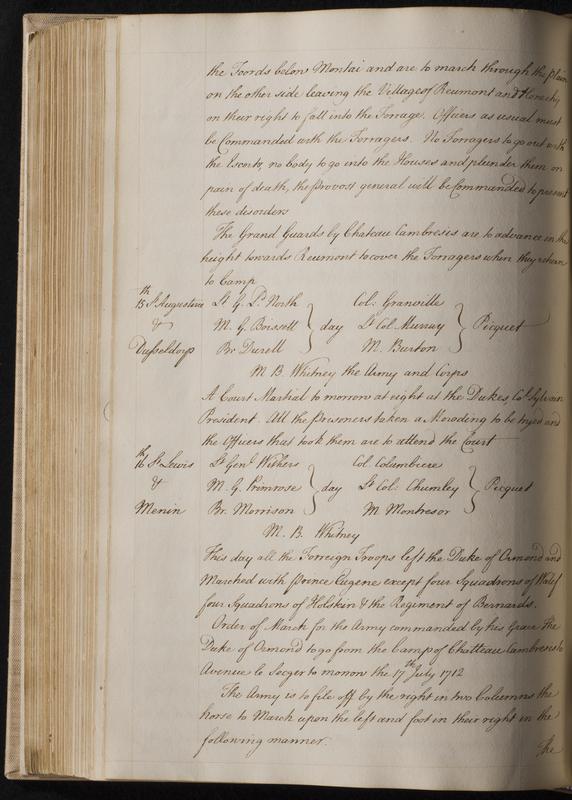 the Foords below Montai and are to march through the plain
on the other side leaving the Village of Reumont and
on their right to fall into the Forrage. Officers as usual must
be Commanded with the Forragers. No Forragers to go out with
the Escorts, no body to go into the Houses and plunder them on
pain of death, the provost general will be Commanded to prevent
these disorders
The Grand Guards by Chateau Cambresis are to advance in the
height towards Reumont to cover the Forragers when they return
to Camp
15th St Augustine Lt G. Ld North Col: Granville
& M. G. Boissett } day Lt Col. Murray } Picquet
Dusseldorp Br Durell M. Burton
M B. Whitney the Army and Corps
A Court Martial to morrow at eight at the Dukes, Col. Sylvain
President. All the prisoners taken a Moroding to be tryed and
the Officers that took them are to attend the Court
16th St Lewis Lt Genl Withers Col Columbiere
& M. G. Primrose } day Lt Col: Chumley } Picquet
Menin Br. Morrison M Montresor
M. B. Whitney
This day all the Forreign Troops left the Duke of Ormond and
Marched with prince Eugene except four Squadrons of Walef
four Squadrons of Holstein & the Regiment of Bernards.
Order of March for the Army commanded by his Grace the
Duke of Ormond to go from the Camp of Chatteau Cambresis to
Avenue le Secq to morrow the 17th July 1712
The Army is to file off by the right in two Columns the
horse to March upon the left and foot in their right in the
following manner.
the